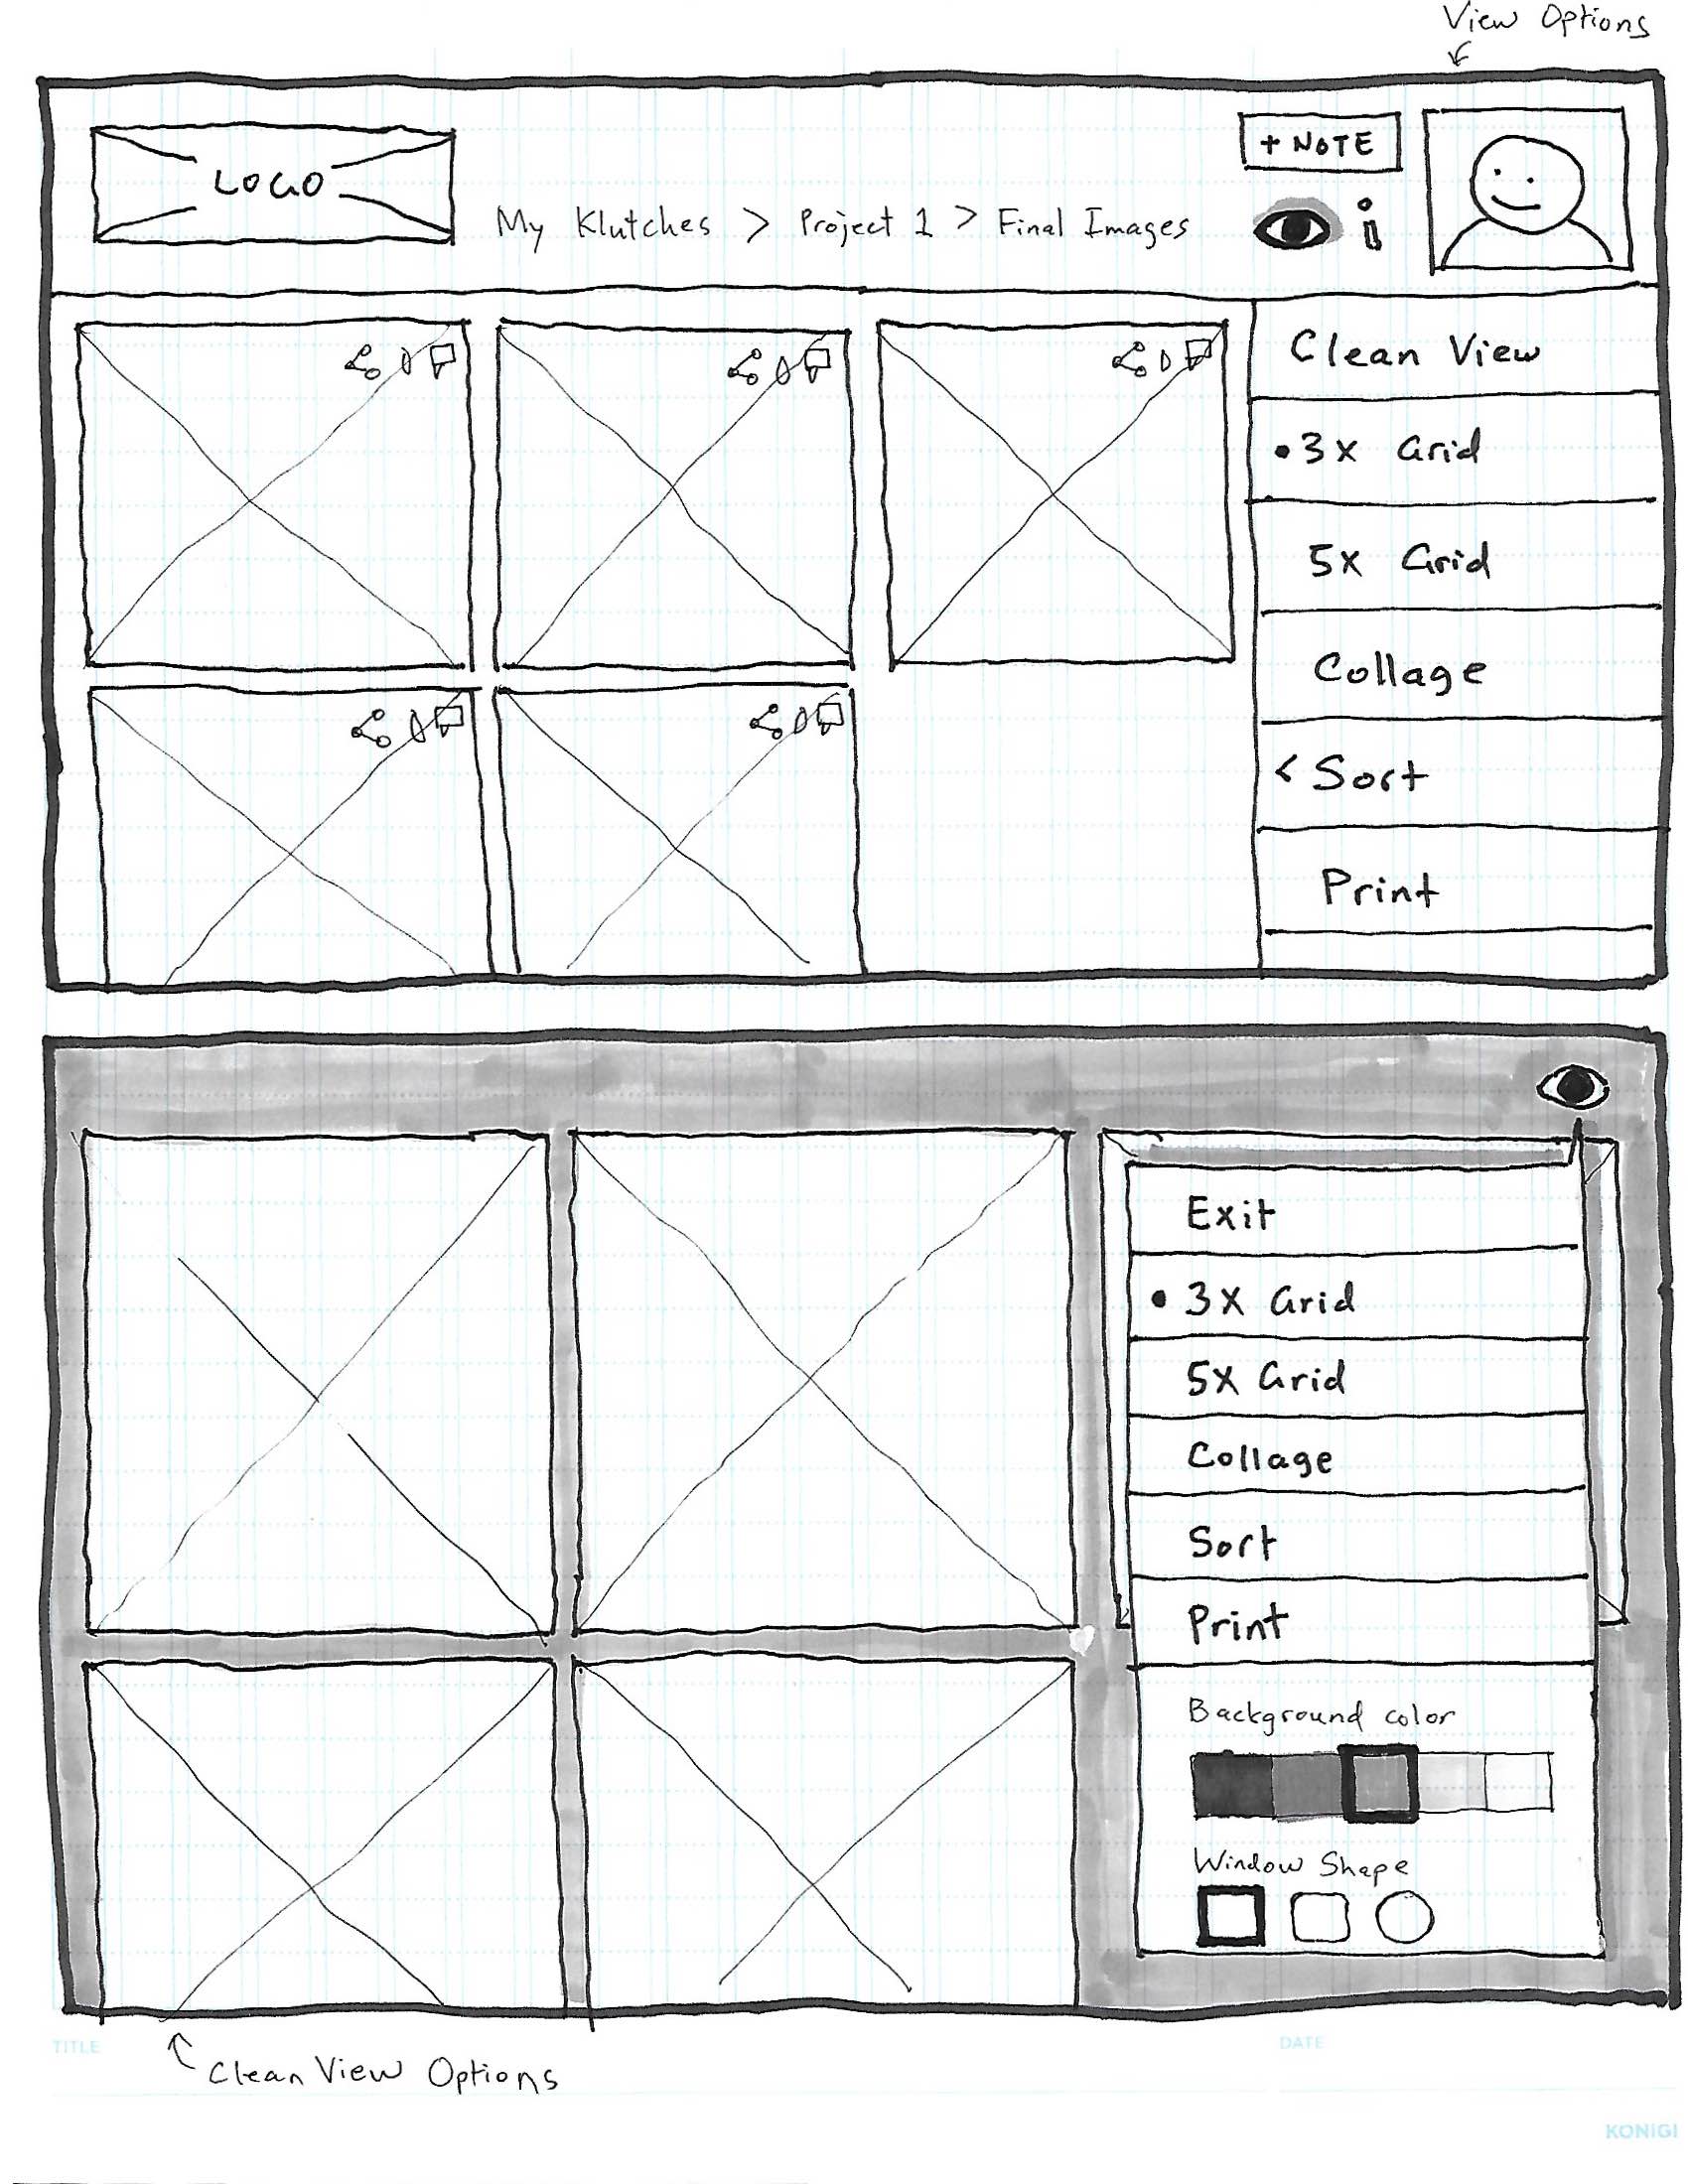 View Options
LOGO
+ NOTE
My Klutches > Project 1 > Final Images
i
Clean View
• 3x Grid
5x Grid
Collage
< Sort
Print
Exit
• 3x Grid
5x Grid
Collage
Sort
Print
Background color
Window Shape
TITLE
DATE
Clean View Options
KONIGI